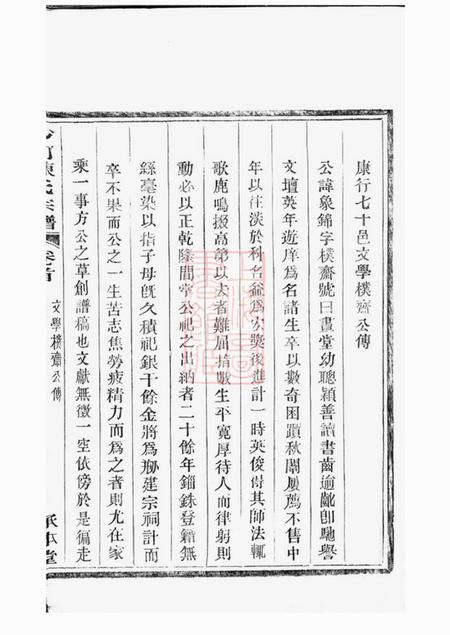 康行七十邑文學樸齋公傳
公諱象錦字樸齋號曰晝堂幼聰穎善讀書齒逾齔卽馳譽
文壇英年遊庠爲名諸生卒以數奇困躓秋闈屢薦不售中
年以往淡於科名益爲公獎後進計一時英俊得其師法輒
歌鹿鳴掇高第以去者難屈指數生平寬厚待人而律躬則
動必以正乾隆間掌公祀之出納者二十餘年錙銖登籍無
絲毫染以指子母旣久積祀銀千餘金將爲剏建宗祠計而
卒不果而公之一生苦志焦勞疲精力而爲之者則尤在家
乘一事方公之草創譜稿也文獻無徵一空依傍於是徧走
陳氏宗譜
卷首
文學樸齋公傳
承本堂